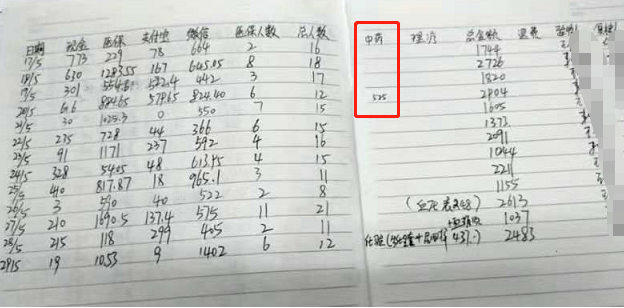 日期 现金 医保 支付宝 微信 医保人数 总人数 中药 理疗 总金额 退费
17/5 773 229 78 664 2 16 1744
18/5 630 1283.55 167 645.05 8 18 2726
19/5 301 554.6 522.4 442 3 17 1820
20/5 884.65 578.65 824.40 6 12 525 2804
21/5 30 1025.3 0 550 7 15 1605
22/5 235 728 44 366 6 15 1373
23/5 91 1171 237 592 4 16 2091
24/5 328 48 4 15 1044
25/5 410 817.87 18 965.1 3 11 2211
26/5 3 590 40 522 2 8 1155
27/5 210 1690.5 137.4 575 11 21 2613
28/5 215 118 299 405 2 11 1037
29/5 19 1053 9 1402 6 12 2483